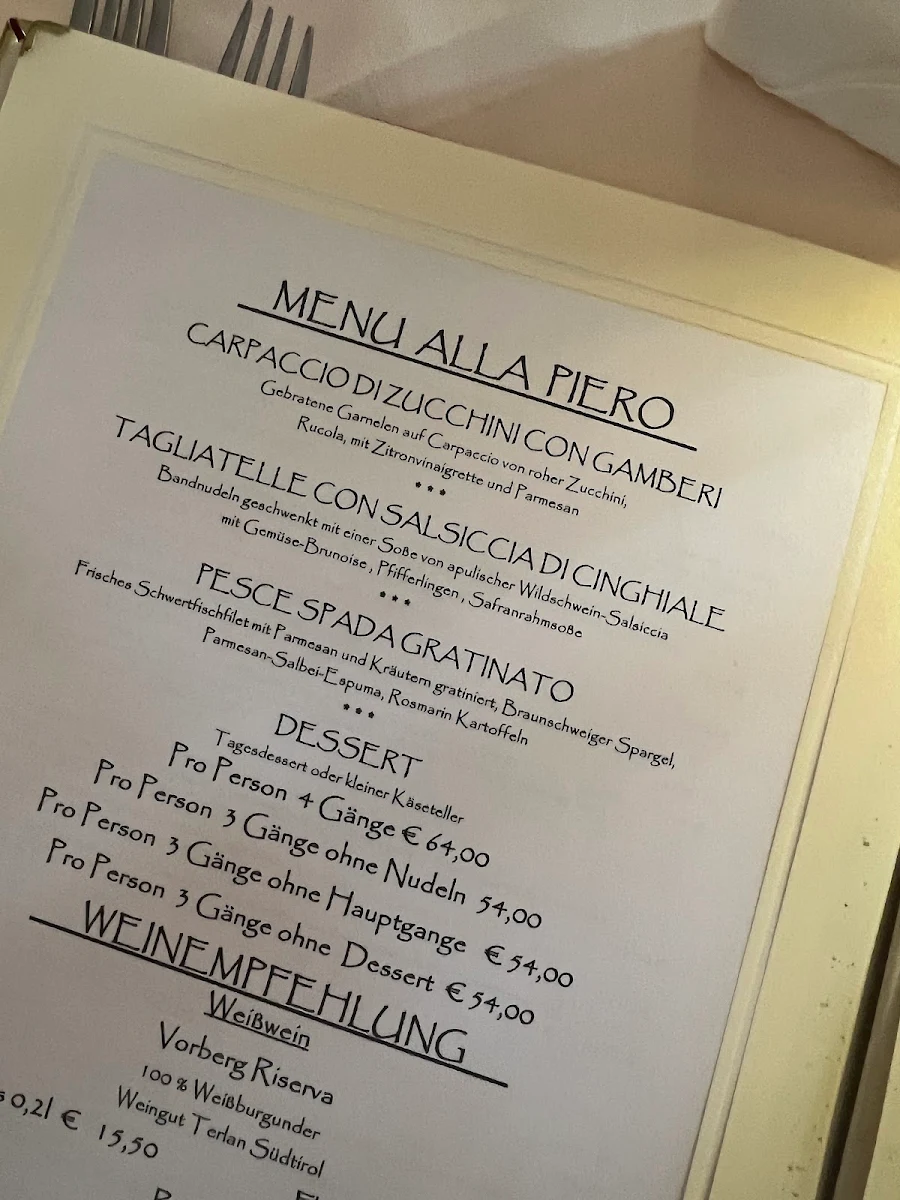 MENU ALLA PIERO
CARPACCIO DI ZUCCHINI CON GAMBERI
Gebratene Garnelen auf Carpaccio von roher Zucchini,
Rucola, mit Zitronvinaigrette und Parmesan
***
TAGLIATELLE CON SALSICCIA DI CINGHIALE
Bandnudeln geschwenkt mit einer Soße von apulischer Wildschwein-Salsiccia
mit Gemüse-Brunoise , Pfifferlingen , Safranrahmsoße
***
PESCE SPADA GRATINATO
Frisches Schwertfischfilet mit Parmesan und Kräutern gratiniert, Braunschweiger Spargel,
Parmesan-Salbei-Espuma, Rosmarin Kartoffeln
***
DESSERT
Tagesdessert oder kleiner Käseteller
Pro Person 4 Gänge € 64,00
Pro Person 3 Gänge ohne Nudeln 54,00
Pro Person 3 Gänge ohne Hauptgange € 54,00
Pro Person 3 Gänge ohne Dessert € 54,00
WEINEMPFEHLUNG
Weißwein
Vorberg Riserva
100 % Weißburgunder
Weingut Terlan Südtirol
0,2l € 15,50